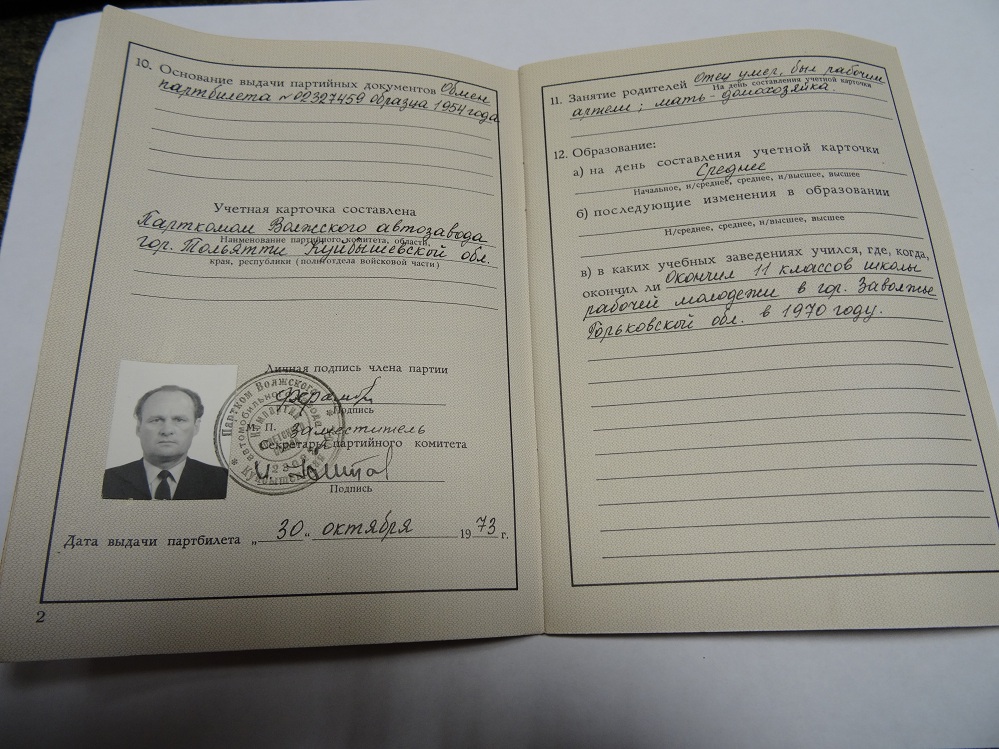 10. Основание выдачи партийных документов Обмен
партбилета № 02327459 образца 1954 года
Учетная карточка составлена
Парткомом Волжского автозавода
Наименование партийного комитета, области,
гор. Тольятти Куйбышевской обл.
края, республики (политотдела войсковой части)
Личная подпись члена партии
Подпись
М. П. Заместитель
Секретарь партийного комитета
Подпись
Партком Волжского
автомобильного завода
Дата выдачи партбилета „30" октября 1973 г.
2
11. Занятие родителей Отец умер, был рабочим
На день составления учетной карточки
артели; мать - домохозяйка.
12. Образование:
а) на день составления учетной карточки
Среднее
Начальное, н/среднее, среднее, н/высшее, высшее
б) последующие изменения в образовании
Н/среднее, среднее, н/высшее, высшее
в) в каких учебных заведениях учился, где, когда,
окончил ли Окончил 11 классов школы
рабочей молодежи в гор. Заволжье
Горьковской обл. в 1970 году.